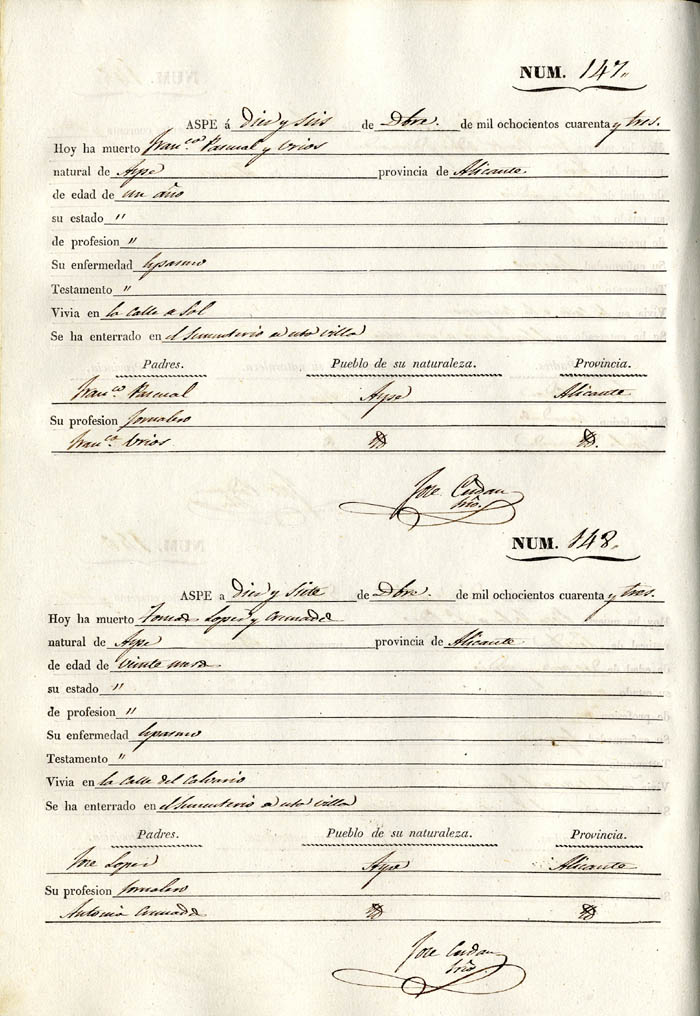 NUM. 147.
ASPE á diez y seis de Dbre. de mil ochocientos cuarenta y tres.
Hoy ha muerto Fran.co Pascual y Urios
natural de Aspe provincia de Alicante
de edad de un año
su estado "
de profesion "
Su enfermedad Espasmo
Testamento "
Vivia en la Calle de Sol
Se ha enterrado en el Sementerio de esta villa
Padres. Pueblo de su naturaleza. Provincia.
Fran.co Pascual Aspe Alicante
Su profesion Jornalero
Fran.ca Urios Yd Yd.
Jose Cerdan
NUM. 148.
ASPE a diez y siete de Dbre. de mil ochocientos cuarenta y tres.
Hoy ha muerto Tomas Lopez y
natural de Aspe provincia de Alicante
de edad de veinte meses
su estado "
de profesion "
Su enfermedad Espasmo
Testamento "
Vivia en la Calle del Calvario
Se ha enterrado en el Sementerio de esta villa
Padres. Pueblo de su naturaleza. Provincia.
Jose Lopez Aspe Alicante
Su profesion Jornalero
Antonia Yd Yd
Jose Cerdan